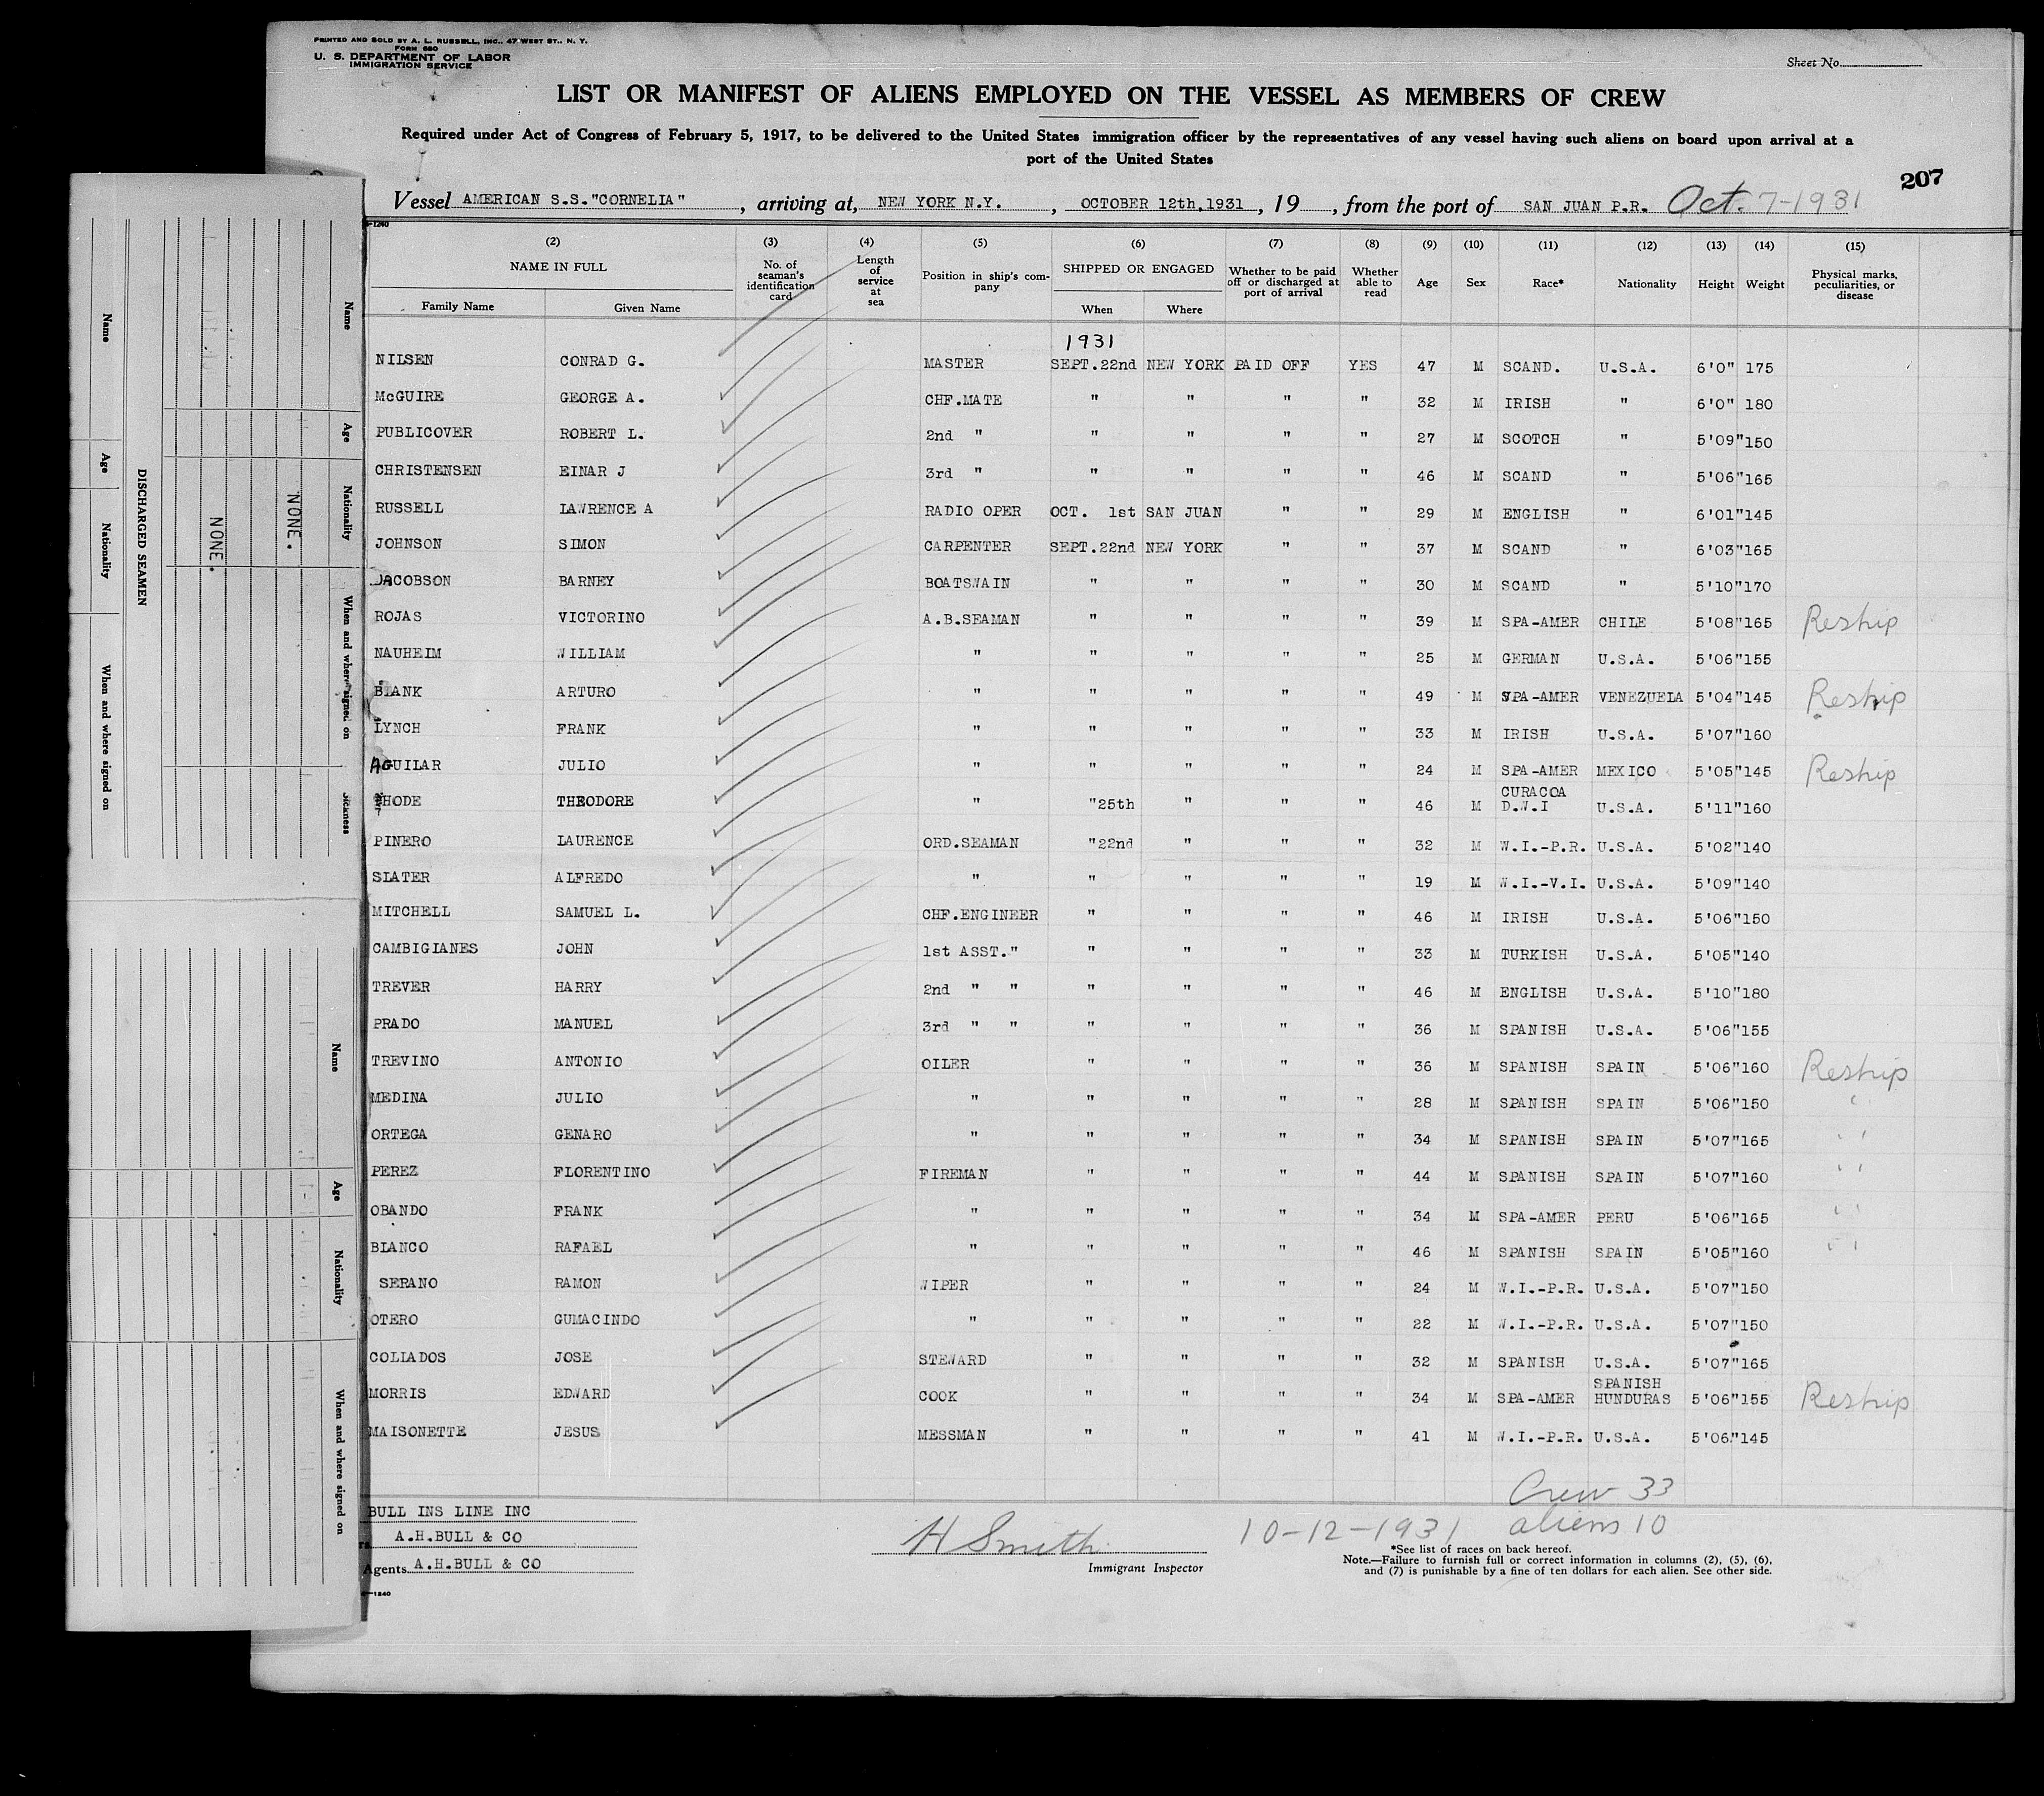 PRINTED AND SOLD BY A. L. RUSSELL, INC., 47 WEST ST., N. Y.
FORM 680
U. S. DEPARTMENT OF LABOR
IMMIGRATION SERVICE
Sheet No.
LIST OR MANIFEST OF ALIENS EMPLOYED ON THE VESSEL AS MEMBERS OF CREW
Required under Act of Congress of February 5, 1917, to be delivered to the United States immigration officer by the representatives of any vessel having such aliens on board upon arrival at a
port of the United States
207
Vessel AMERICAN S.S."CORNELIA", arriving at, NEW YORK N.Y., OCTOBER 12th,1931, 19, from the port of SAN JUAN P.R. Oct. 7-1931
(2) (3) (4) (5) (6) (7) (8) (9) (10) (11) (12) (13) (14) (15)
NAME IN FULL No. of seaman's identification card Length of service at sea Position in ship's company SHIPPED OR ENGAGED Whether to be paid off or discharged at port of arrival Whether able to read Age Sex Race* Nationality Height Weight Physical marks, peculiarities, or disease
Family Name Given Name When Where
1931
NILSEN CONRAD G. MASTER SEPT.22nd NEW YORK PAID OFF YES 47 M SCAND. U.S.A. 6'0" 175
McGUIRE GEORGE A. CHF.MATE " " " " 32 M IRISH " 6'0" 180
PUBLICOVER ROBERT L. 2nd " " " " " 27 M SCOTCH " 5'09" 150
CHRISTENSEN EINAR J 3rd " " " " " 46 M SCAND " 5'06" 165
RUSSELL LAWRENCE A RADIO OPER OCT. 1st SAN JUAN " " 29 M ENGLISH " 6'01" 145
JOHNSON SIMON CARPENTER SEPT.22nd NEW YORK " " 37 M SCAND " 6'03" 165
JACOBSON BARNEY BOATSWAIN " " " " 30 M SCAND " 5'10" 170
ROJAS VICTORINO A.B.SEAMAN " " " " 39 M SPA-AMER CHILE 5'08" 165 Reship
NAUHEIM WILLIAM " " " " " 25 M GERMAN U.S.A. 5'06" 155
BLANK ARTURO " " " " " 49 M SPA-AMER VENEZUELA 5'04" 145 Reship
LYNCH FRANK " " " " " 33 M IRISH U.S.A. 5'07" 160
AGUILAR JULIO " " " " " 24 M SPA-AMER MEXICO 5'05" 145 Reship
RHODE THEODORE " "25th " " " 46 M CURACOA D.W.I U.S.A. 5'11" 160
PINERO LAURENCE ORD.SEAMAN "22nd " " " 32 M W.I.-P.R. U.S.A. 5'02" 140
SLATER ALFREDO " " " " " 19 M W.I.-V.I. U.S.A. 5'09" 140
MITCHELL SAMUEL L. CHF.ENGINEER " " " " 46 M IRISH U.S.A. 5'06" 150
CAMBIGIANES JOHN 1st ASST." " " " " 33 M TURKISH U.S.A. 5'05" 140
TREVER HARRY 2nd " " " " " " 46 M ENGLISH U.S.A. 5'10" 180
PRADO MANUEL 3rd " " " " " " 36 M SPANISH U.S.A. 5'06" 155
TREVINO ANTONIO OILER " " " " 36 M SPANISH SPAIN 5'06" 160 Reship
MEDINA JULIO " " " " " 28 M SPANISH SPAIN 5'06" 150 "
ORTEGA GENARO " " " " " 34 M SPANISH SPAIN 5'07" 165 "
PEREZ FLORENTINO FIREMAN " " " " 44 M SPANISH SPAIN 5'07" 160 "
OBANDO FRANK " " " " " 34 M SPA-AMER PERU 5'06" 165 "
BLANCO RAFAEL " " " " " 46 M SPANISH SPAIN 5'05" 160 "
SERANO RAMON WIPER " " " " 24 M W.I.-P.R. U.S.A. 5'07" 150
OTERO GUMACINDO " " " " " 22 M W.I.-P.R. U.S.A. 5'07" 150
COLLADOS JOSE STEWARD " " " " 32 M SPANISH U.S.A. 5'07" 165
MORRIS EDWARD COOK " " " " 34 M SPA-AMER SPANISH HUNDURAS 5'06" 155 Reship
MAISONETTE JESUS MESSMAN " " " " 41 M W.I.-P.R. U.S.A. 5'06" 145
Crew 33
aliens 10
BULL INS LINE INC
A.H.BULL & CO
Agents A.H.BULL & CO
H Smith
Immigrant Inspector
10-12-1931
*See list of races on back hereof.
Note.—Failure to furnish full or correct information in columns (2), (5), (6),
and (7) is punishable by a fine of ten dollars for each alien. See other side.
DISCHARGED SEAMEN
Name Age Nationality When and where signed on
Name Age Nationality When and where signed on Sickness
NONE.
NONE.
Name Age Nationality When and where signed on